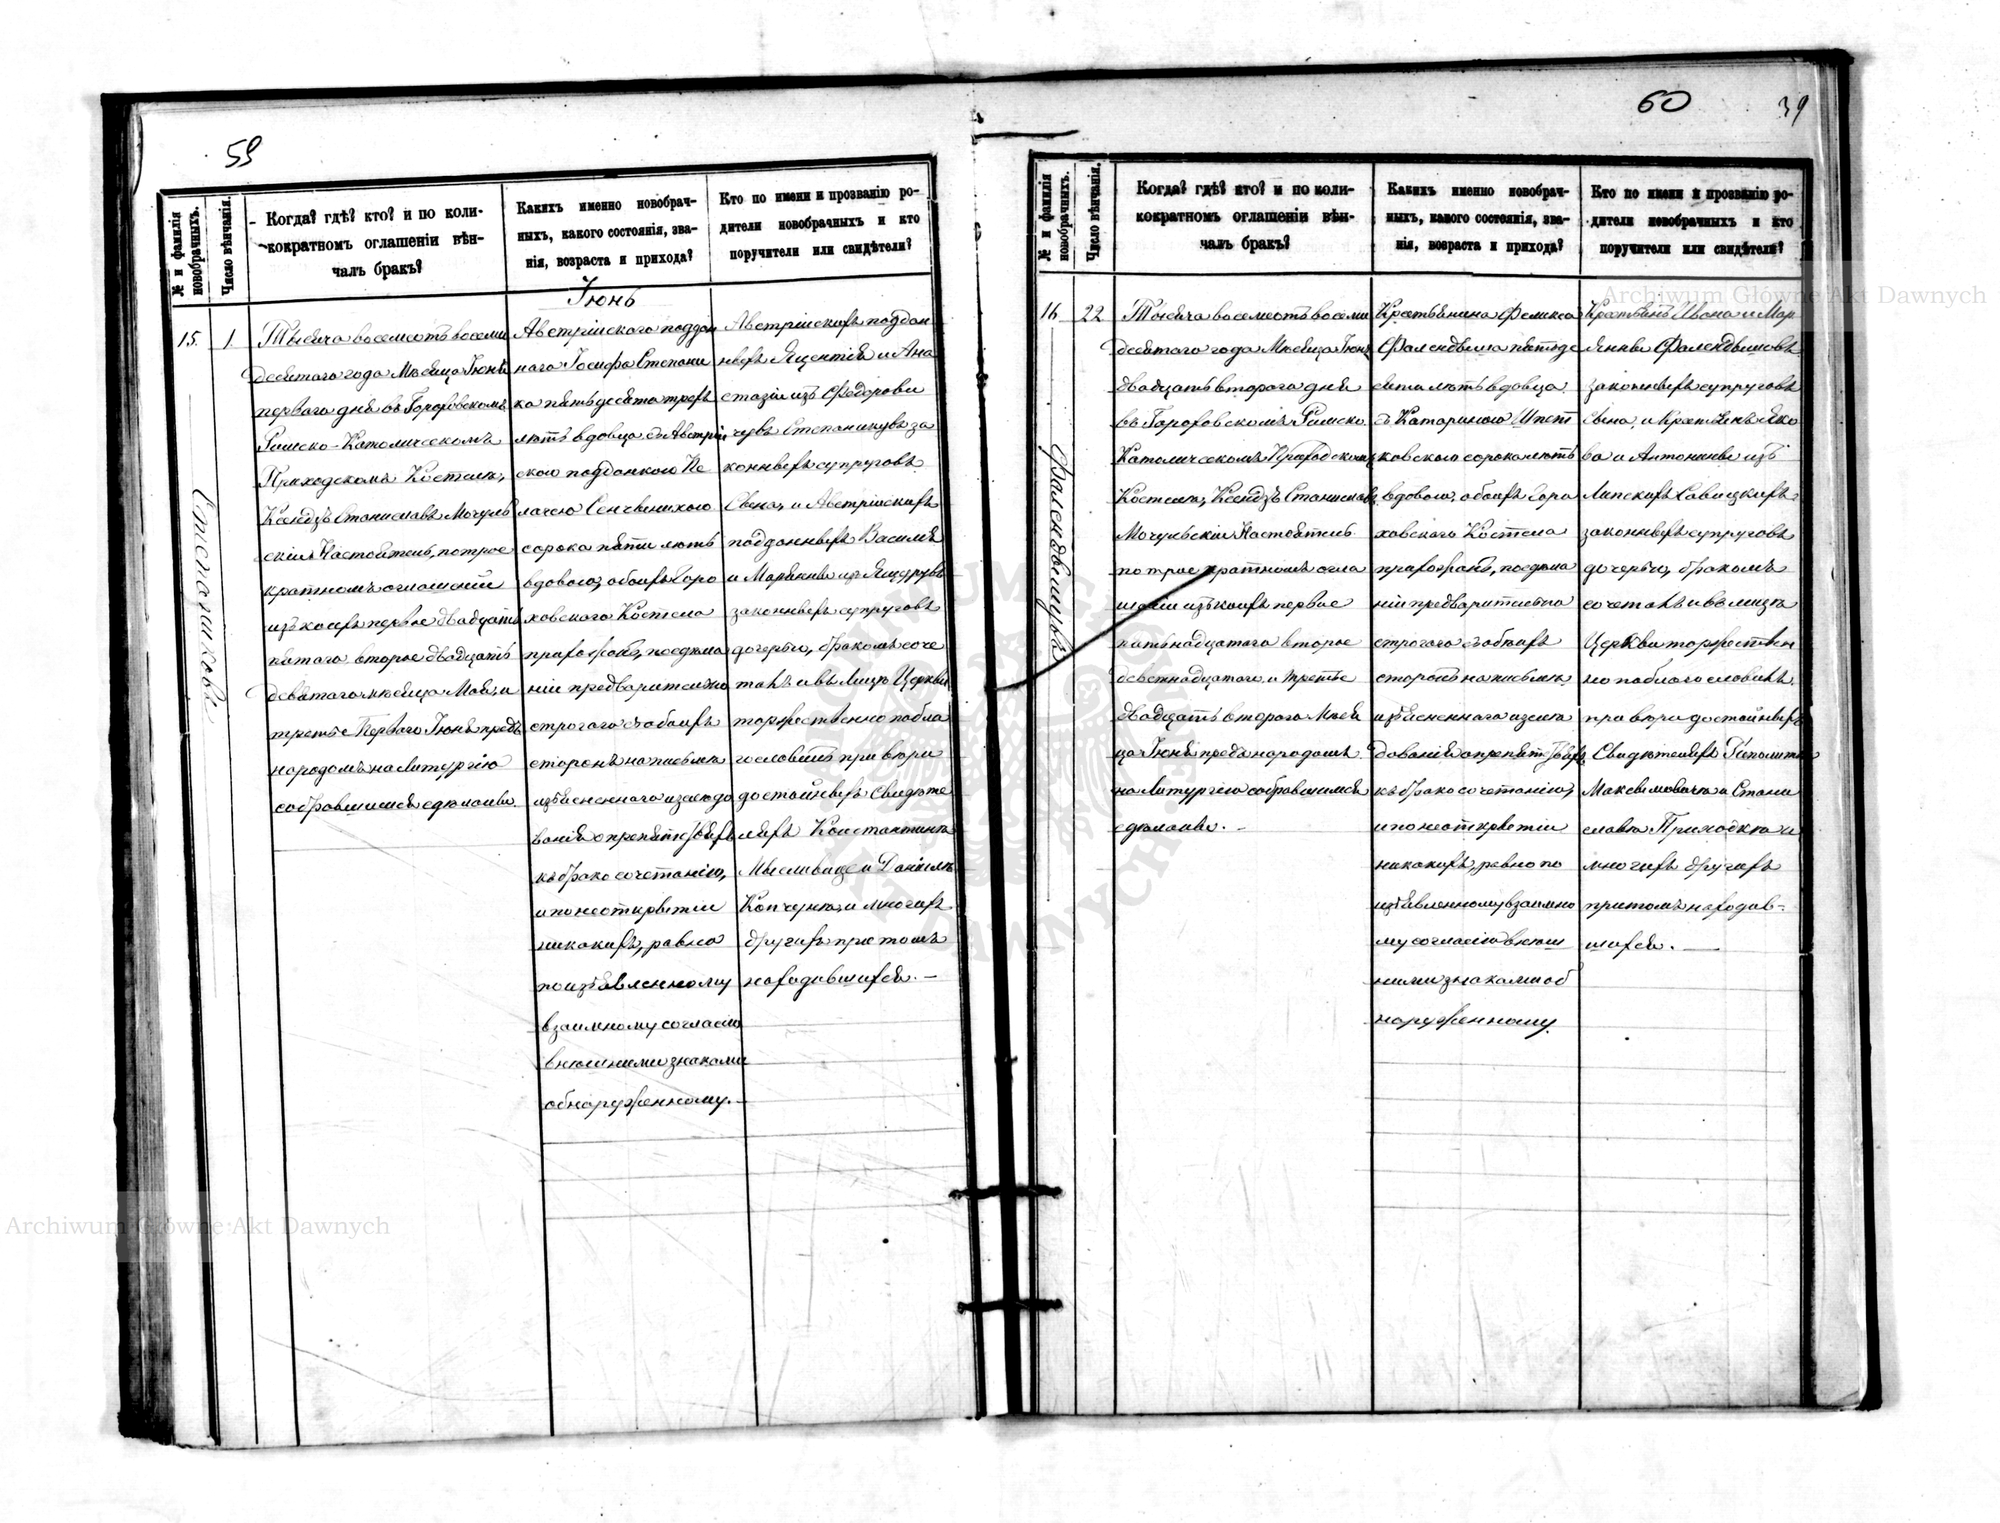 59
№ и фамилія новобрачныхъ.
Число вѣнчанія.
Когда? гдѣ? кто? и по коли-
кократномъ оглашеніи вѣн-
чалъ бракъ?
Какихъ именно новобрач-
ныхъ, какого состоянія, зва-
нія, возраста и прихода?
Кто по имени и прозванію ро-
дители новобрачныхъ и кто
поручители или свидѣтели?
Іюнь
15.
1
Тысяча восемьсотъ восьми
десятого года Мѣсяца Іюня
перваго дня въ Гороховскомъ
Римско-Католическомъ
Приходскомъ Костелѣ,
Ксендзъ Станиславъ Мочуль
скій Настоятель, по трое
кратномъ оглашеніи
изъ коихъ первое двадцать
пятаго второе двадцать
девятаго мѣсяца Мая, и
третье Перваго Іюня предъ
народомъ на Литургію
собравшимся сдѣланы.
Австрійского поддан
наго Іосифа Степани
ка пятьдесятъ трехъ
лѣтъ вдовца съ Австрій
скою подданкою Пе
лагею Сенчвиникою
сорока пяти лѣтъ
вдовою, обоихъ Горо
ховского Костела
прихожанъ, по сдѣла
ніи предварительно
строгого съ обоихъ
сторонъ на письмѣ
изъясненнаго изслѣдо
ванія о препятствіяхъ
къ бракосочетанію,
и по неоткрытіи
никакихъ, равно
по изъявленному
взаимному согласію
внѣшними знаками
обнаруженному.
Австрійскихъ поддан
ныхъ Яцентія и Ана
стазіи изъ Федорови
чувъ Степаникувъ за
конныхъ супруговъ
Сына, и Австрійскихъ
подданныхъ Василя
и Маріанны изъ
законныхъ супруговъ
дочерью, бракомъ соче
талъ и въ Лицѣ Церкви
торжественно побла
гословилъ при вѣро
достойныхъ Свидѣте
ляхъ Константинѣ
и Даніилѣ
и многихъ
другихъ при томъ
находившихся.—
Степаниковъ
60
39
№ и фамилія новобрачныхъ.
Число вѣнчанія.
Когда? гдѣ? кто? и по коли-
кократномъ оглашеніи вѣн-
чалъ бракъ?
Какихъ именно новобрач-
ныхъ, какого состоянія, зва-
нія, возраста и прихода?
Кто по имени и прозванію ро-
дители новобрачныхъ и кто
поручители или свидѣтели?
16
22
Тысяча восемьсотъ восьми
десятаго года Мѣсяца Іюня
двадцать второго дня
въ Гороховскомъ Римско
Католическомъ Приходскомъ
Костелѣ, Ксендзъ Станиславъ
Мочульскій Настоятель
по троекратномъ огла
шеніи изъ коихъ первое
пятьнадцатаго второе
девятнадцатаго и третье
двадцать второго Мѣся
ца Іюня предъ народомъ
на Литургію собравшимся
сдѣланы.—
Крестьянина Феликса
Фалендыша пятьде
сяти лѣтъ вдовца
съ Катариною
ковскою сорока лѣтъ
вдовою, обоихъ Горо
ховского Костела
прихожанъ, по сдѣла
ніи предварительно
строгого съ обоихъ
сторонъ на письмѣ
изъясненнаго изслѣ
дованія о препятствіяхъ
къ бракосочетанію,
и по неоткрытіи
никакихъ, равно по
изъявленному взаимно
му согласію внѣш
ними знаками об
наруженному.
Крестьянъ Ивана и Мар
іянны Фалендышовъ
законныхъ супруговъ
Сына, и Крестьянъ Яко
ва и Антонины изъ
Липскихъ Савицкихъ
законныхъ супруговъ
дочерью, бракомъ
сочеталъ и въ лицѣ
Церкви торжествен
но поблагословилъ
при вѣродостойныхъ
Свидѣтеляхъ Ипполитѣ
Максимовича и Стани
славѣ Приходка и
многихъ другихъ
притомъ находив-
шихся.—
Archiwum Główne Akt Dawnych
Archiwum Główne Akt Dawnych